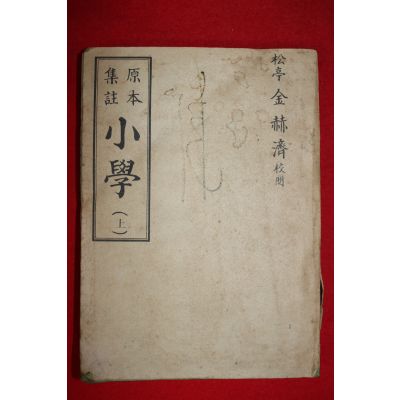 松亭 金赫濟 校閱
原本
集註
小學
(上)